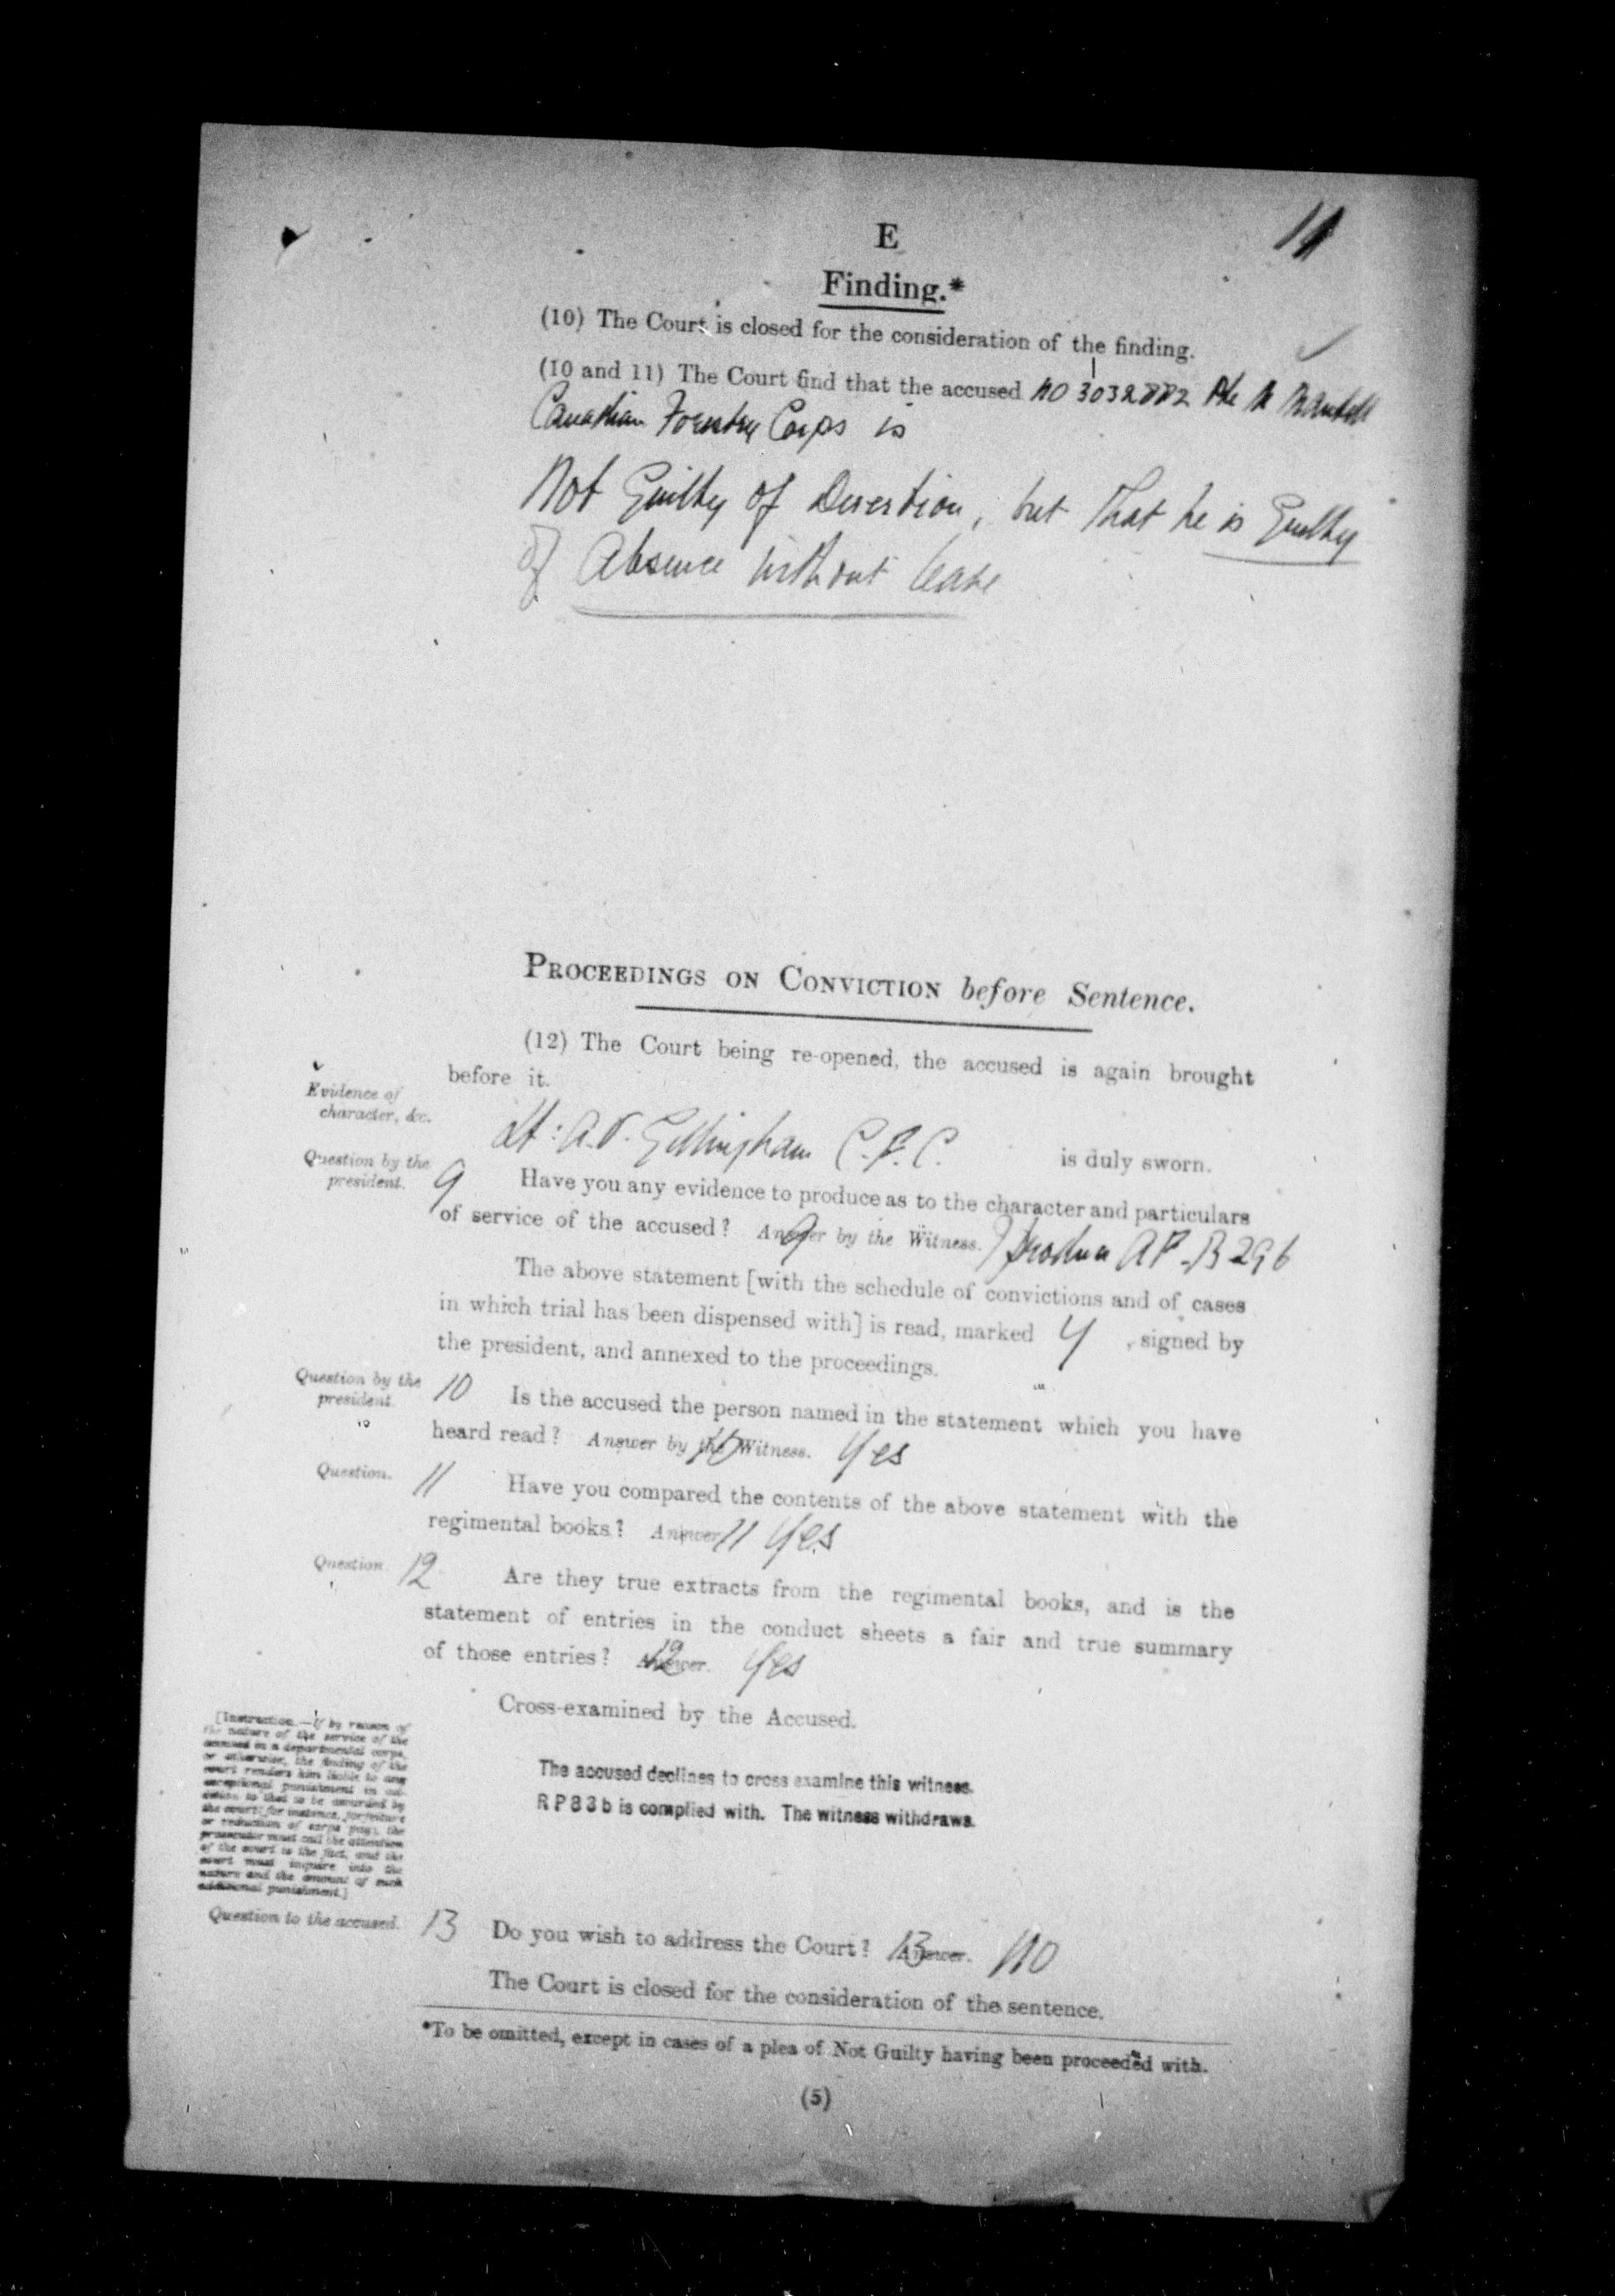 11
E
Finding.*
(10) The Court is closed for the consideration of the finding.
(10 and 11) The Court find that the accused No 3032882 Pte
Canadian Forestry Corps is
Not Guilty of Desertion, but that he is Guilty
of Absence without leave
PROCEEDINGS ON CONVICTION before Sentence.
(12) The Court being re-opened, the accused is again brought
before it.
Evidence of
character, &c.
Lt: A. Gillingham C.F.C. is duly sworn.
Question by the
president.
9 Have you any evidence to produce as to the character and particulars
of service of the accused? Answer by the Witness. 9 I produce AF-B296
The above statement [with the schedule of convictions and of cases
in which trial has been dispensed with] is read, marked 4, signed by
the president, and annexed to the proceedings.
Question by the
president.
10 Is the accused the person named in the statement which you have
heard read? Answer by the Witness. 10 Yes
Question.
11 Have you compared the contents of the above statement with the
regimental books? Answer 11 Yes
Question
12 Are they true extracts from the regimental books, and is the
statement of entries in the conduct sheets a fair and true summary
of those entries? Answer. 12 Yes
Cross-examined by the Accused.
[Instruction.—If by reason of
the nature of the service of the
accused in a departmental corps,
or otherwise, the finding of the
court renders him liable to any
exceptional punishment in ad-
dition to that to be awarded by
the court; for instance, forfeiture
or reduction of corps pay, the
prosecutor must call the attention
of the court to the fact, and the
court must inquire into the
nature and the amount of such
additional punishment.]
The accused declines to cross examine this witness.
R P 83 b is complied with. The witness withdraws.
Question to the accused.
13 Do you wish to address the Court? Answer. 13 No
The Court is closed for the consideration of the sentence.
*To be omitted, except in cases of a plea of Not Guilty having been proceeded with.
(5)